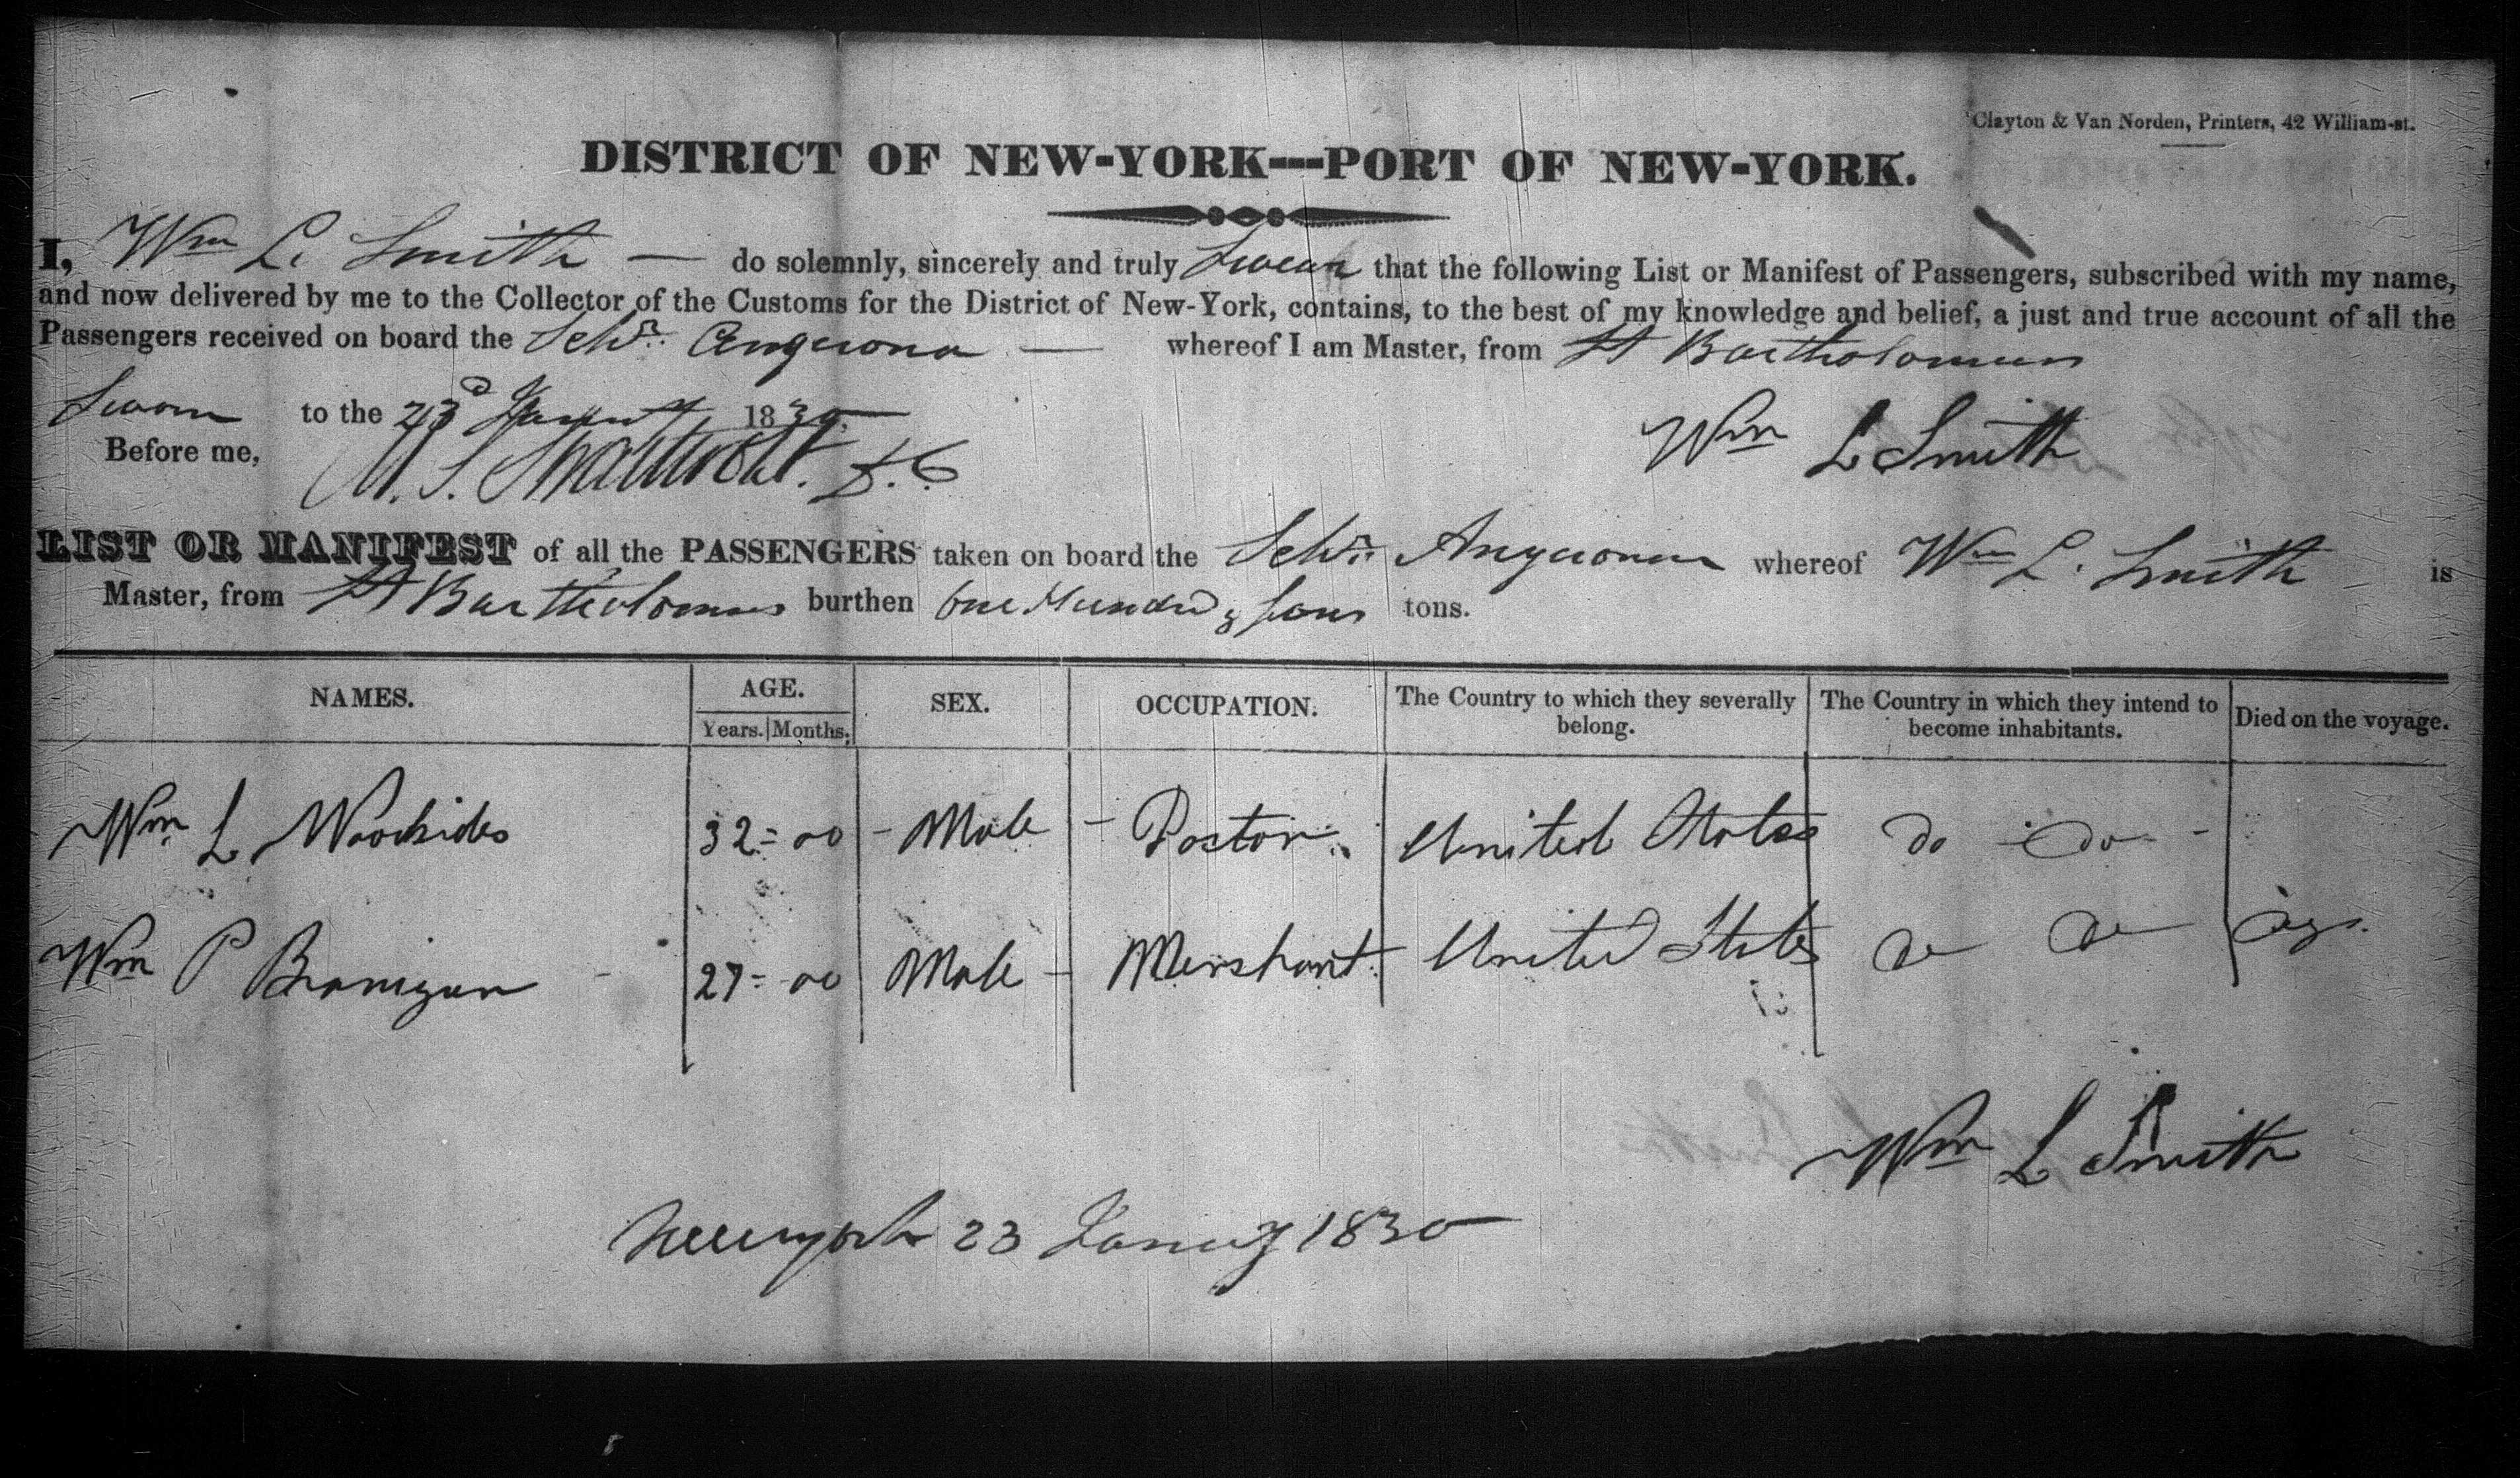 Clayton & Van Norden, Printers, 42 William-st.
DISTRICT OF NEW-YORK---PORT OF NEW-YORK.
I, Wm L. Smith — do solemnly, sincerely and truly Swear that the following List or Manifest of Passengers, subscribed with my name,
and now delivered by me to the Collector of the Customs for the District of New-York, contains, to the best of my knowledge and belief, a just and true account of all the
Passengers received on board the Schr. Angerona — whereof I am Master, from St Bartholomews
Sworn to the 23d 1830
Before me, D.C
Wm L Smith
LIST OR MANIFEST of all the PASSENGERS taken on board the Schr. Angerona whereof Wm L. Smith is
Master, from St Bartholomews burthen One Hundred & four tons.
NAMES. AGE. SEX. OCCUPATION. The Country to which they severally belong. The Country in which they intend to become inhabitants. Died on the voyage.
Years. Months.
Wm L Woodsides 32 = 00 - Male - United States do do -
Wm P Branigan - 27 = 00 Male - Merchant. United States do do
Wm L Smith
Newyork 23 Janury 1830